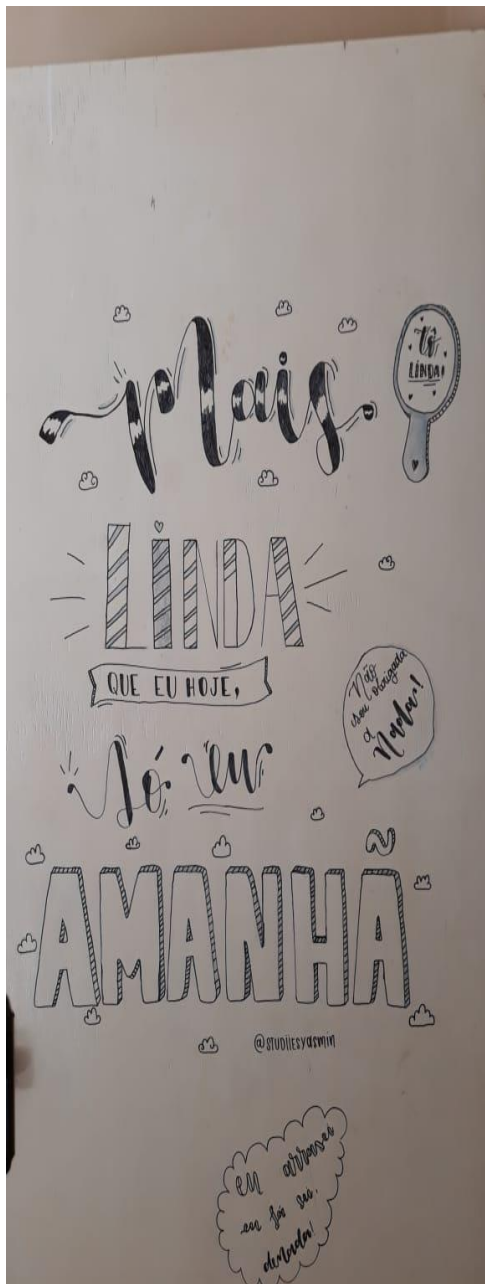 Mais
Tô
LINDA!
LINDA
QUE EU HOJE,
Não
sou obrigada
a
Nada!
Só eu
AMANHÃ
@studiiesyasmin
eu arrasei
em